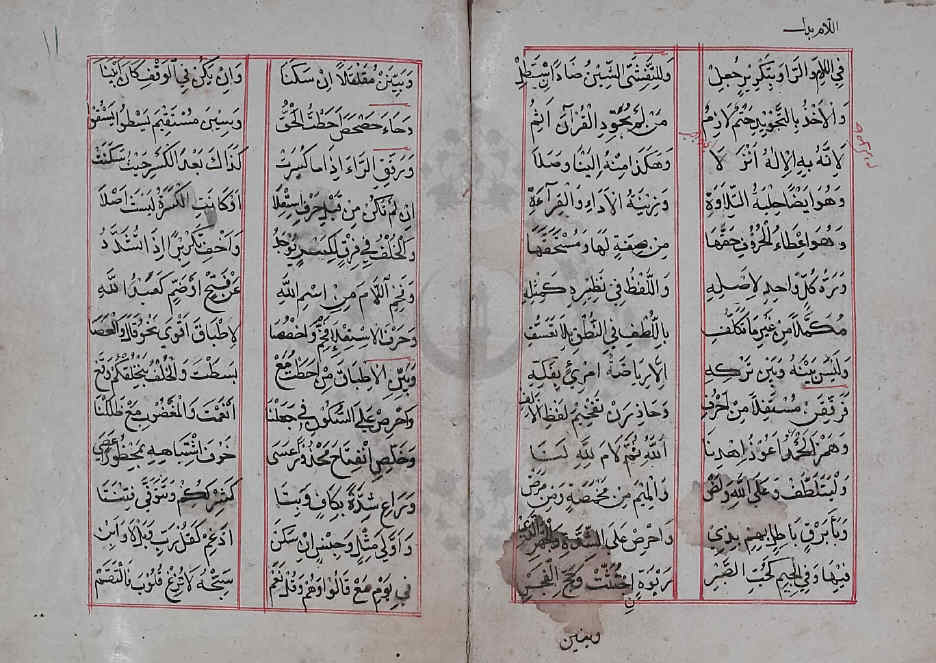 في اللام والرا وبتكرير جعل وللتفشي الشين ضادا استطل
والأخذ بالتجويد حتم لازم من لم يجود القرآن آثم
لأنه به الإله أنزلا وهكذا منه إلينا وصلا
وهو أيضا حلية التلاوة وزينة الأداء والقراءة
وهو إعطاء الحروف حقها من صفة لها ومستحقها
ورد كل واحد لأصله واللفظ في نظيره كمثله
مكملا من غير ما تكلف باللطف في النطق بلا تعسف
وليس بينه وبين تركه إلا رياضة امرئ بفكه
فرققن مستفلا من أحرف وحاذرن تفخيم لفظ الألف
وهمز الحمد أعوذ إهدنا الله ثم لام لله لنا
وليتلطف وعلى الله ولا الض والميم من مخمصة ومن مرض
وباء برق باطل بهم بذي واحرص على الشدة والجهر الذي
فيها وفي الجيم كحب الصبر ربوة اجتثت وحج الفجر
وبينن
١١
وبينن مقلقلا إن سكنا وإن يكن في الوقف كان أبينا
وحاء حصحص أحطت الحق وسين مستقيم يسطو يسقو
ورقق الراء إذا ما كسرت كذاك بعد الكسر حيث سكنت
إن لم تكن من قبل حرف استعلا أو كانت الكسرة ليست أصلا
والخلف في فرق لكسر يوجد وأخف تكريرا إذا تشدد
وفخم اللام من اسم الله عن فتح أو ضم كعبد الله
وحرف الاستعلاء فخم واخصصا لاطباق أقوى نحو قال والعصا
وبين الإطباق من أحطت مع بسطت والخلف بنخلقكم وقع
واحرص على السكون في جعلنا أنعمت والمغضوب مع ضللنا
وخلص انفتاح محذورا عسى خوف اشتباهه بمحظورا عصى
وراع شدة بكاف وبتا كشرككم وتتوفى فتنتا
وأولي مثل وجنس إن سكن أدغم كقل رب وبل لا وأبن
في يوم مع قالوا وهم وقل نعم سبحه لا تزغ قلوب فالتقم